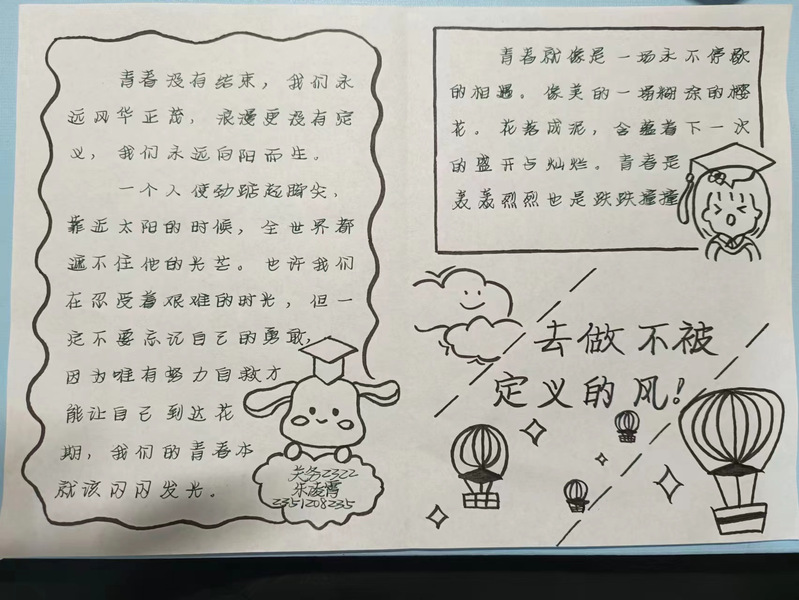 青春没有结束，我们永
远风华正茂，浪漫更没有定
义，我们永远向阳而生。
一个人使劲踮起脚尖，
靠近太阳的时候，全世界都
遮不住他的光芒。也许我们
在忍受着艰难的时光，但一
定不要忘记自己的勇敢，
因为唯有努力自救才
能让自己到达花
期，我们的青春本
就该闪闪发光。
关务2322
乐凌霄
2351208235
青春就像是一场永不停歇
的相遇。像美的一塌糊涂的樱
花。花落成泥，含蕴着下一次
的盛开与灿烂。青春是
轰轰烈烈也是跌跌撞撞
去做不被
定义的风！